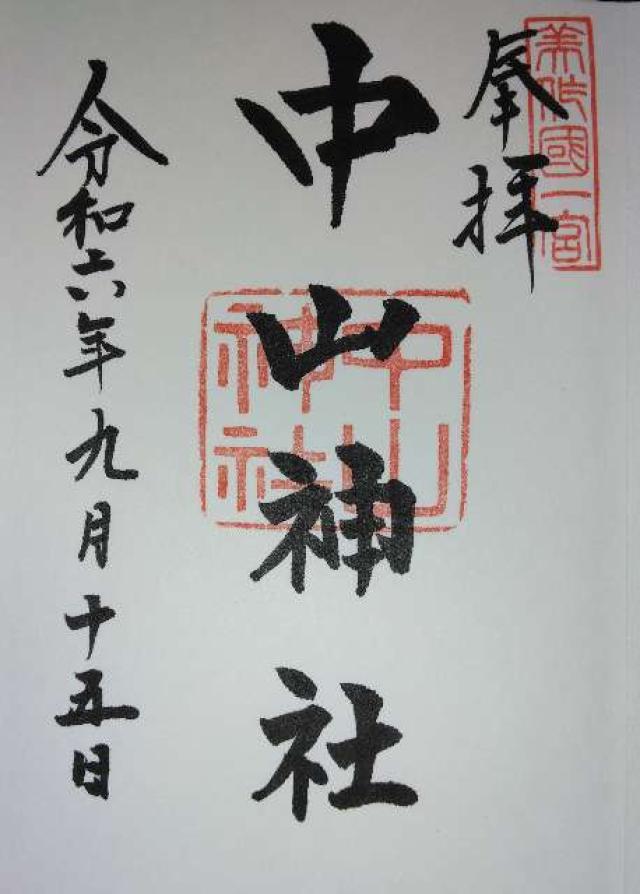 奉拝
美作國一宮
中山神社
中山神社
令和六年九月十五日